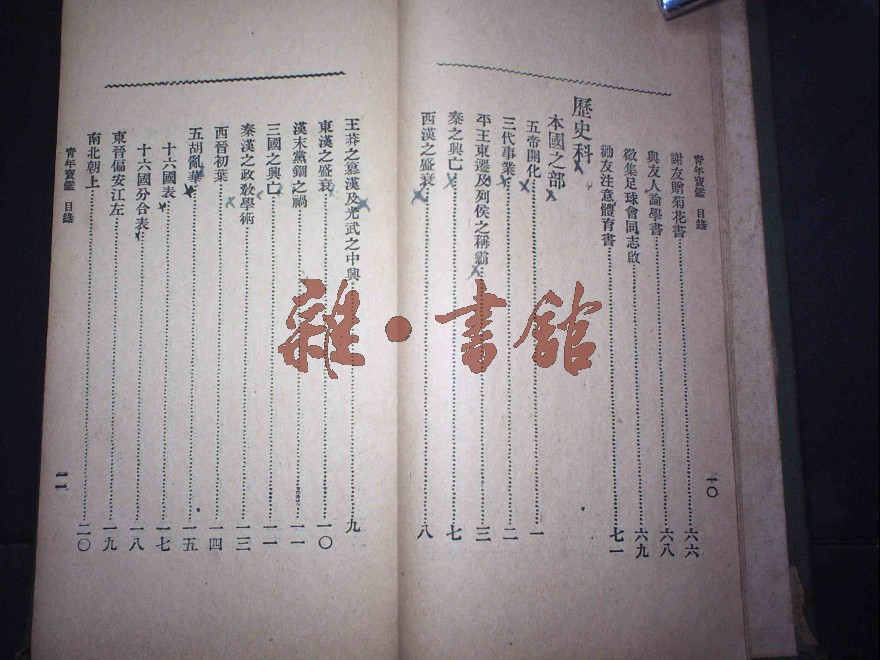 青年寶鑑 目錄
謝友贈菊花書 六六
與友人論學書 六八
徵集足球會同志啟 六九
勸友注意體育書 七一
歷史科
本國之部
五帝開化 一
三代事業 二
平王東遷及列侯之稱霸 三
秦之興亡 七
西漢之盛衰 八
一〇
王莽之簒漢及光武之中興 九
東漢之盛衰 一〇
漢末黨錮之禍 一一
三國之興亡 一一
秦漢之政敎學術 一三
西晉初葉 一四
五胡亂華 一五
十六國表 一七
十六國分合表 一八
東晉偏安江左 一九
南北朝上 二〇
青年寶鑑 目錄
一一
雜·書館